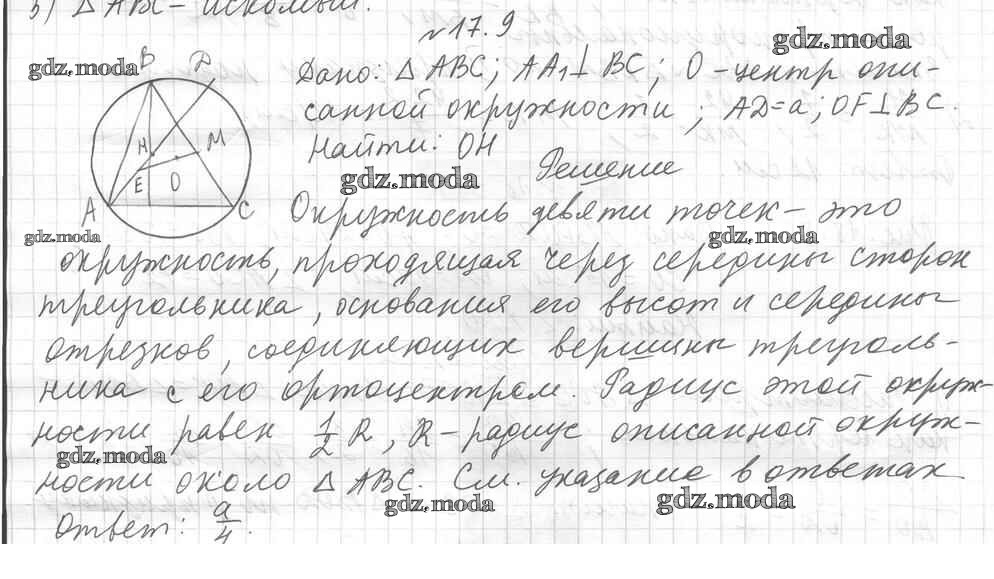 3) △ ABC - искомый.
№17.9
Дано: △ ABC; AA₁⊥ BC; O - центр опи-
санной окружности; AD=a; OF⊥BC.
Найти: OH
Решение
Окружность девяти точек - это
окружность, проходящая через середины сторон
треугольника, основания его высот и середины
отрезков, соединяющих вершины треуголь-
ника с его ортоцентром. Радиус этой окруж-
ности равен 1/2 R, R - радиус описанной окруж-
ности около △ ABC. См. указание в ответах
Ответ: a/4.
B
D
H
M
E
O
A
C
gdz.moda
gdz.moda
gdz.moda
gdz.moda
gdz.moda
gdz.moda
gdz.moda
gdz.moda